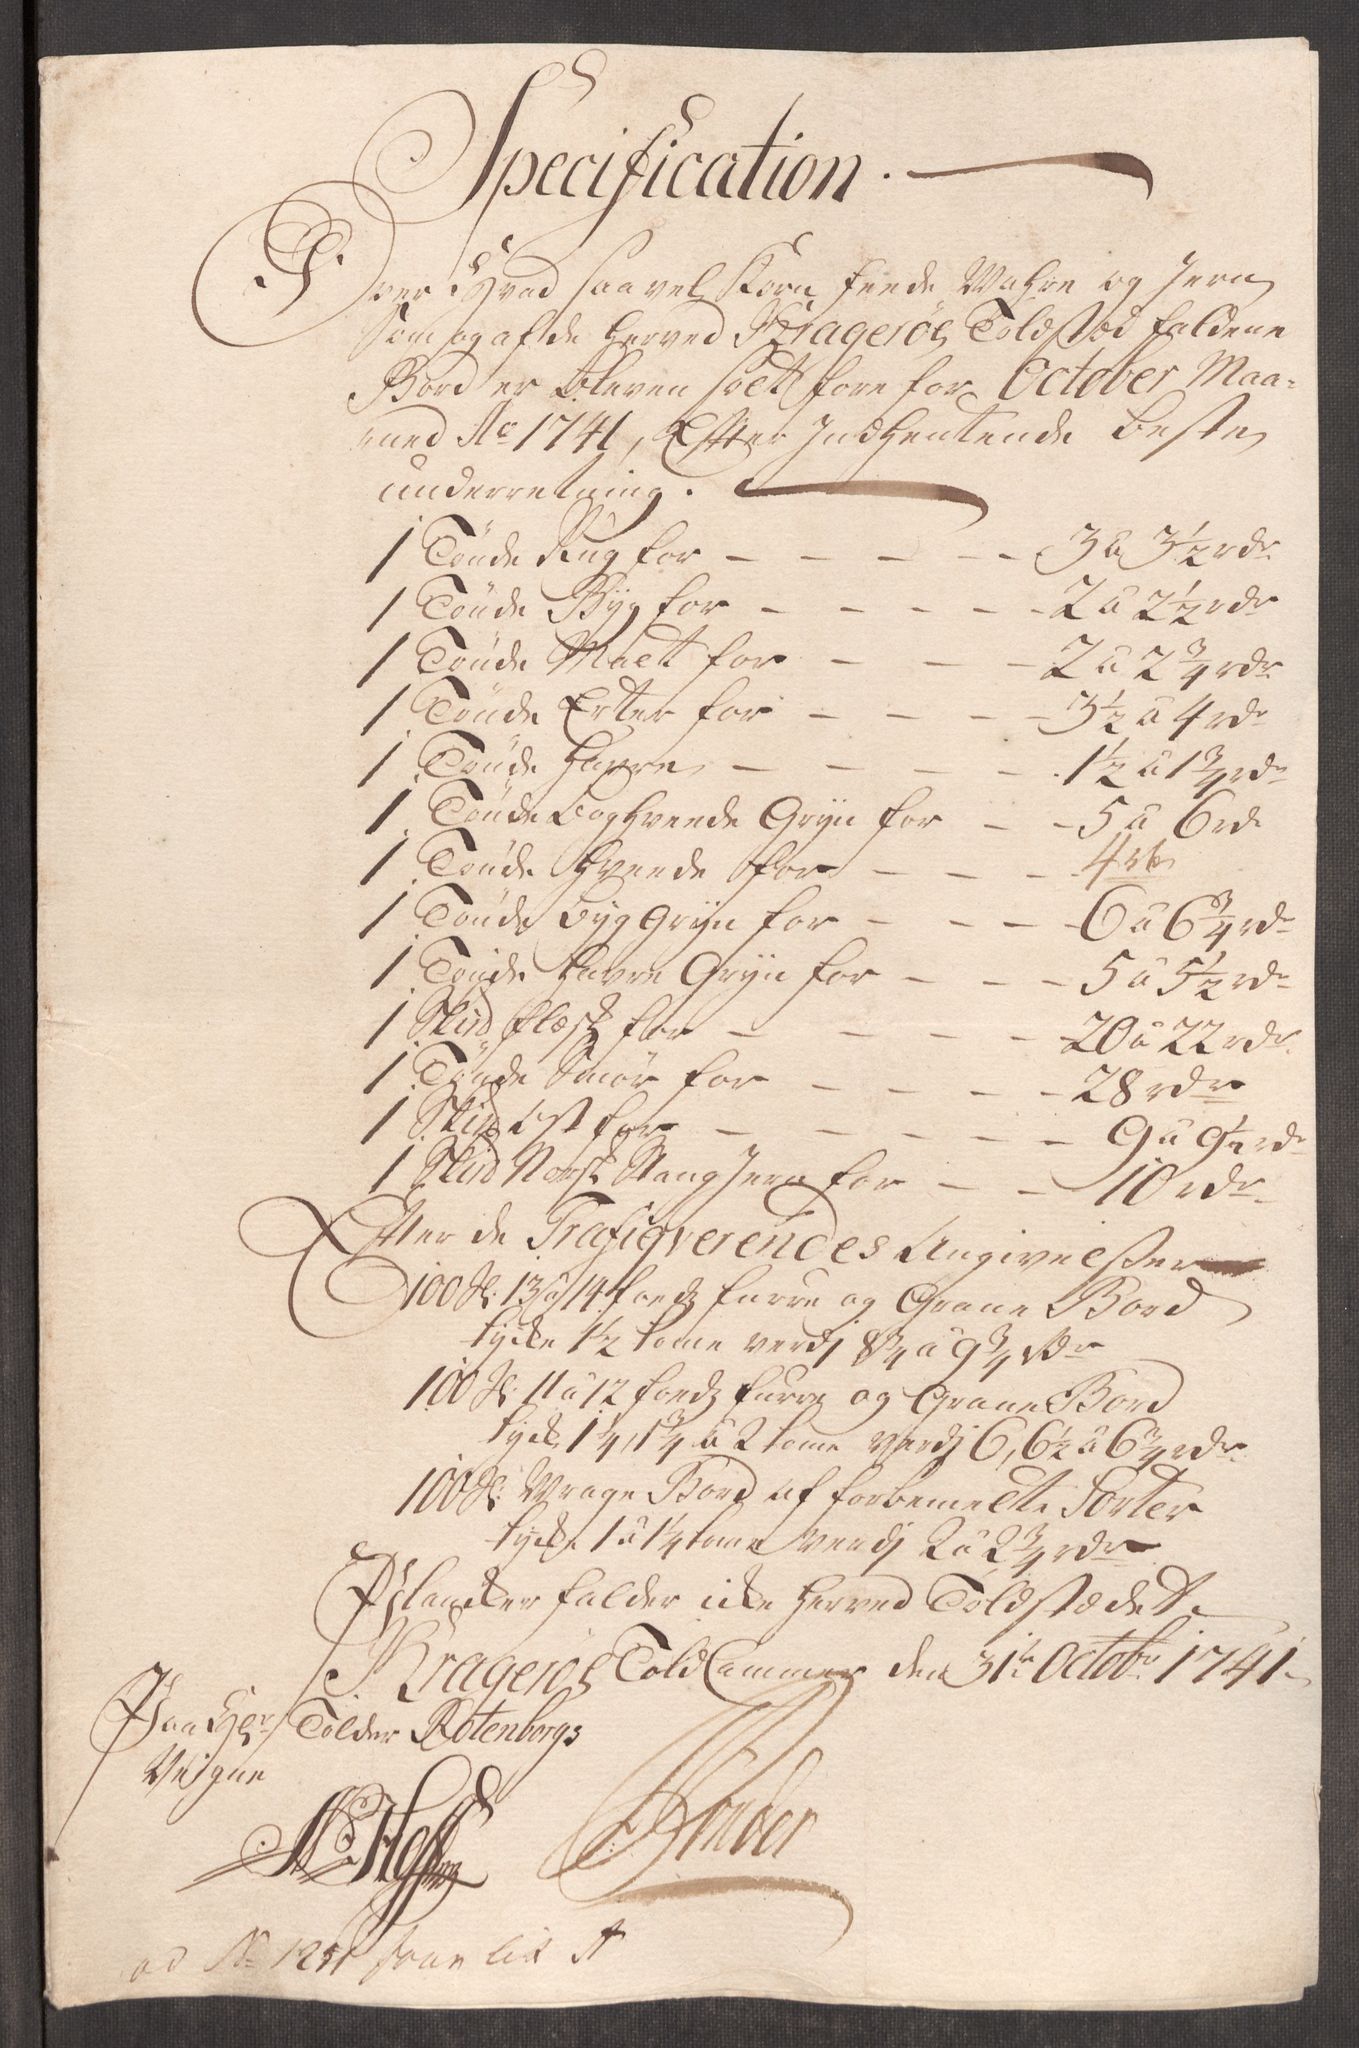 Specification.
Over Hvad saavel Korn feede Wahre og Jern
Som og af de herved Kragerøes Toldsted faldene
Bord er bleven solt fore for October Maa-
ned Ao 1741, Efter Indhentende beste
underretning.
1 Tønde Rug for - - - - - 3 a 3 1/2 rdr
1 Tønde Byg for - - - - - 2 a 2 1/2 rdr
1 Tønde Malt for - - - 2 a 2 3/4 rdr
1 Tønde Erter for - - - - 3 1/2 a 4 rdr
1 Tønde Havre - - - - - 1 1/2 a 1 3/4 rdr
1 Tønde Boghveede Gryn for - - 5 a 6 rd
1 Tønde Hveede for - - - - 4 rd
1 Tønde Byg Gryn for - - - - 6 a 6 3/4 rdr
1 Tønde Havre Gryn for - - - - 5 a 5 1/2 rdr
1 Skud Flæsk for - - - - - 20 a 22 rdr
1 Tønde Smør for - - - - 28 rdr
1 Skud Ost for - - - - - - 9 a 9 1/2 rdr
1 Skud Norsk Stang Jern for - - - 10 rdr
Efter de Trafiqverendes Angivelser
100 St: 13 a 14 foeds furre og Grane Bord
tycke 1 1/2 tome verdj 8 3/4 a 9 3/4 rdr
100 St: 11 a 12 foeds furre og Grane Bord
tyck 1 1/4, 1 3/4 a 2 tome verdj 6, 6 1/2 a 6 3/4 rdr
100 St: Vrage Bord af forbemelte Sorter
tycke 1 a 1 1/4 tome verdj 2 a 2 3/4 rdr
Plancker falder icke herved Toldstædet
Kragerøe Told Cammer den 31te Octobr 1741
Paa Hr Tolder Rotenborgs
Veigne
ad No 1251 Lit A